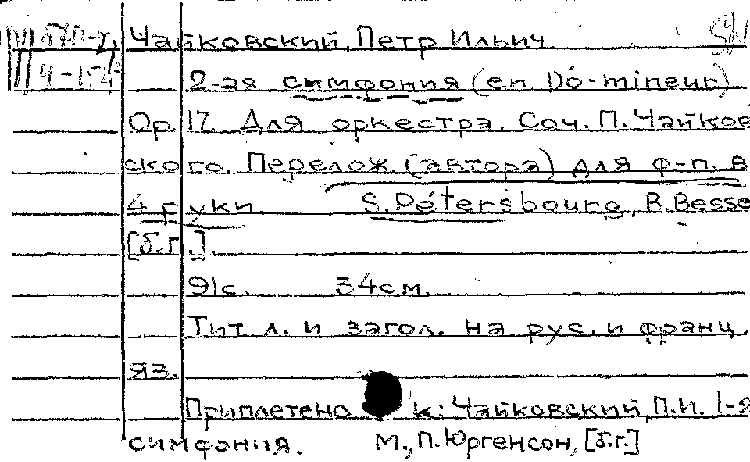 Чайковский, Петр Ильич
2-ая симфония (en Do-mineur)
Op. 17. Для оркестра. Соч. П. Чайков
ского. Перелож. (автора) для ф-п. в
4 руки S. Pétersbourg, B. Besse
[б.г.].
91с. 34см.
Тит. л. и загол. на рус. и франц.
яз.
Приплетено к: Чайковский, П.И. 1-я
симфония. М., П. Юргенсон, [б.г.]